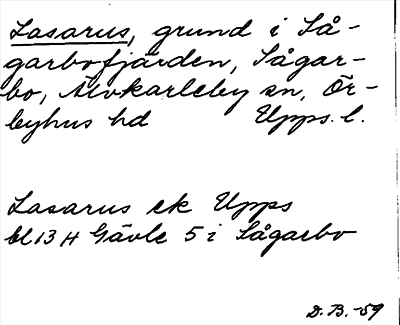 Lasarus, grund i Så-
garbofjärden, Sågar-
bo, Älvkarleby sn, Ör-
byhus hd Upps. l.
Lasarus ek Upps
bl 13 H Gävle 5 i Sågarbo
D.B.-59